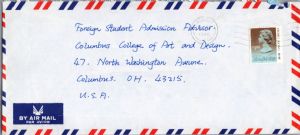 Foreign Student Admission Advisor.
Columbus College of Art and Design.
47. North Washington Avenue.
Columbus OH. 43215.
U.S.A.
BY AIR MAIL
PAR AVION